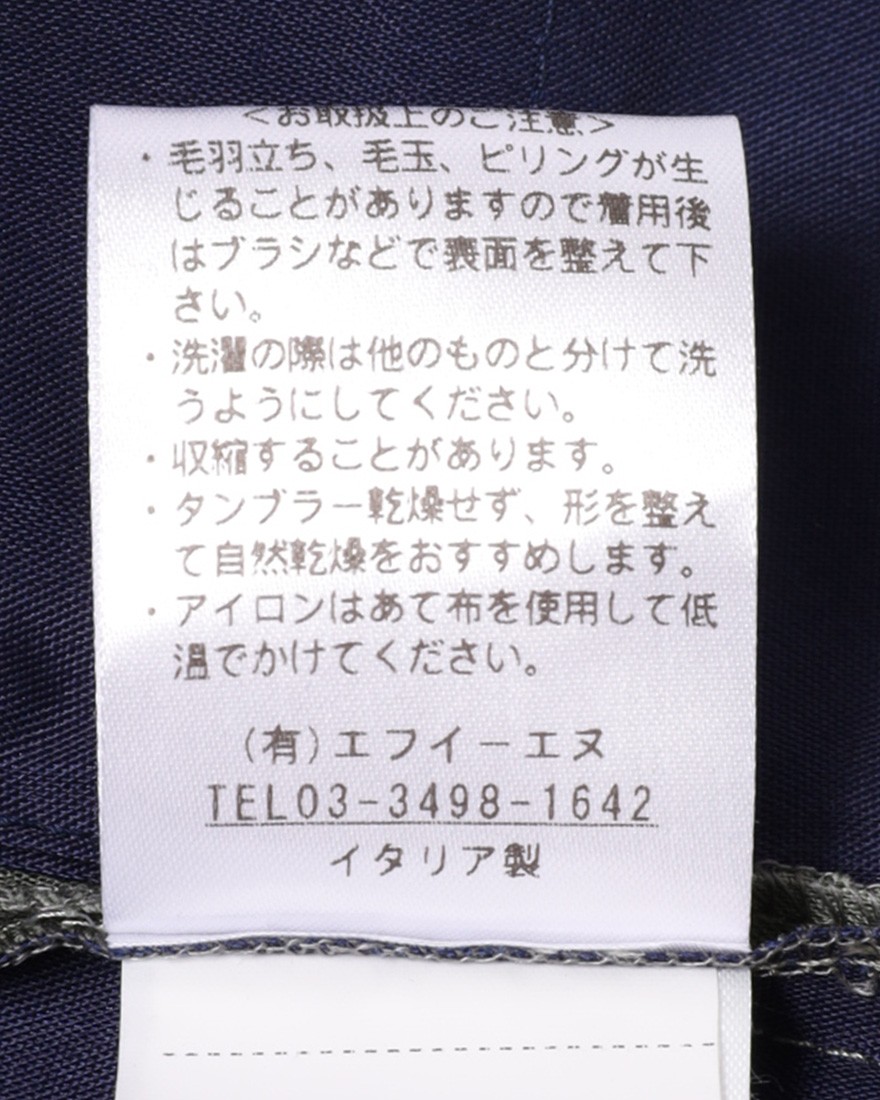 <お取扱上のご注意>
・毛羽立ち、毛玉、ピリングが生
じることがありますので着用後
はブラシなどで表面を整えて下
さい。
・洗濯の際は他のものと分けて洗
うようにしてください。
・収縮することがあります。
・タンブラー乾燥せず、形を整え
て自然乾燥をおすすめします。
・アイロンはあて布を使用して低
温でかけてください。
(有)エフイーエヌ
TEL03-3498-1642
イタリア製